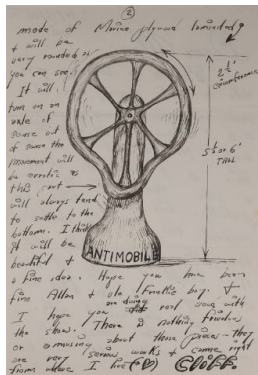 ②
made of Marine plywood laminated
& will be
very rounded as
you can see.
It will
turn on an
axle of
course out
of
movement will
be erratic as
this part
will always tend
to settle to the
bottom. I think
it will be
beautiful &
a fine idea. Hope you have been
fine Allan & ole Frankie boy. &
I hope you are doing real good with
the show. There is nothing frivolous
or amusing about these pieces - they
are very serious works & come right
from where I live
Cliff.
2½'
CIRCUMFERENCE
5½ or 6'
TALL
ANTIMOBILE